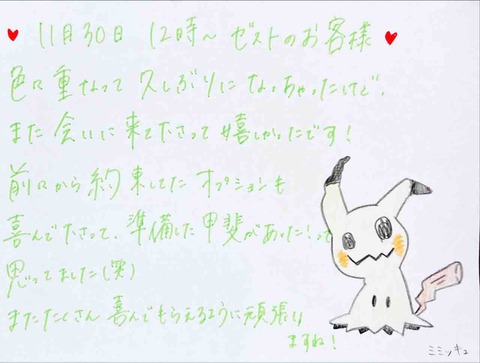 ♥ 11月30日 12時〜 ゼストのお客様 ♥
色々重なって久しぶりになっちゃったけど、
また会いに来て下さって嬉しかったです！
前々から約束してたオプションも
喜んで下さって、準備した甲斐があった！って
思ってました(笑)
またたくさん喜んでもらえるように頑張り
ますね！
ミミッキュ